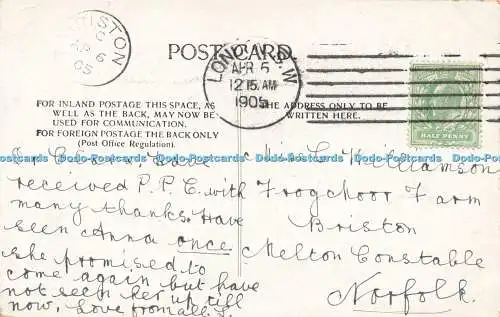 BRISTON
AP 6
05
POST CARD
LONDON S.W
APR 5
12 15 AM
1905
FOR INLAND POSTAGE THIS SPACE, AS
WELL AS THE BACK, MAY NOW BE
USED FOR COMMUNICATION.
FOR FOREIGN POSTAGE THE BACK ONLY
(Post Office Regulation).
THE ADDRESS ONLY TO BE
WRITTEN HERE.
HALF PENNY
received P.P.C. with
many thanks. Have
seen Anna once
she promised to
come again but have
not seen her up till
now. Love from all
Williamson
Farm
Briston
Melton Constable
Norfolk.
Postcards-Data Postcards-Data Postcards-Data Postcards-Data